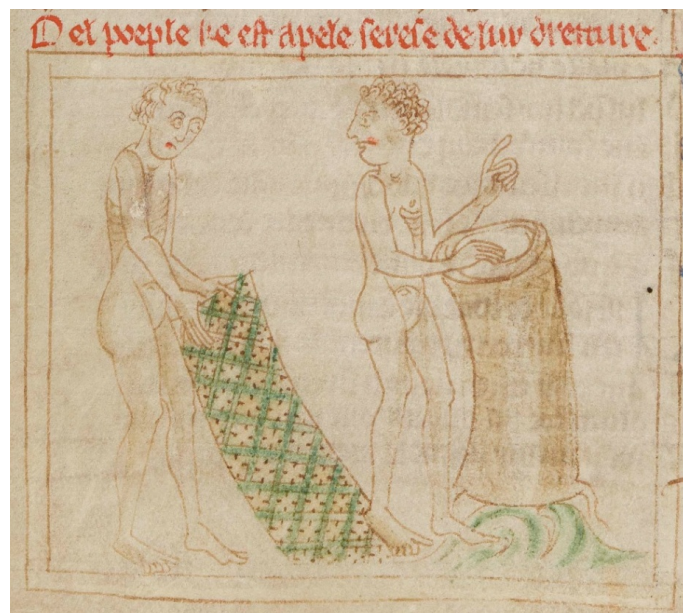 Del poeple ke est apele serese de lur dretture.